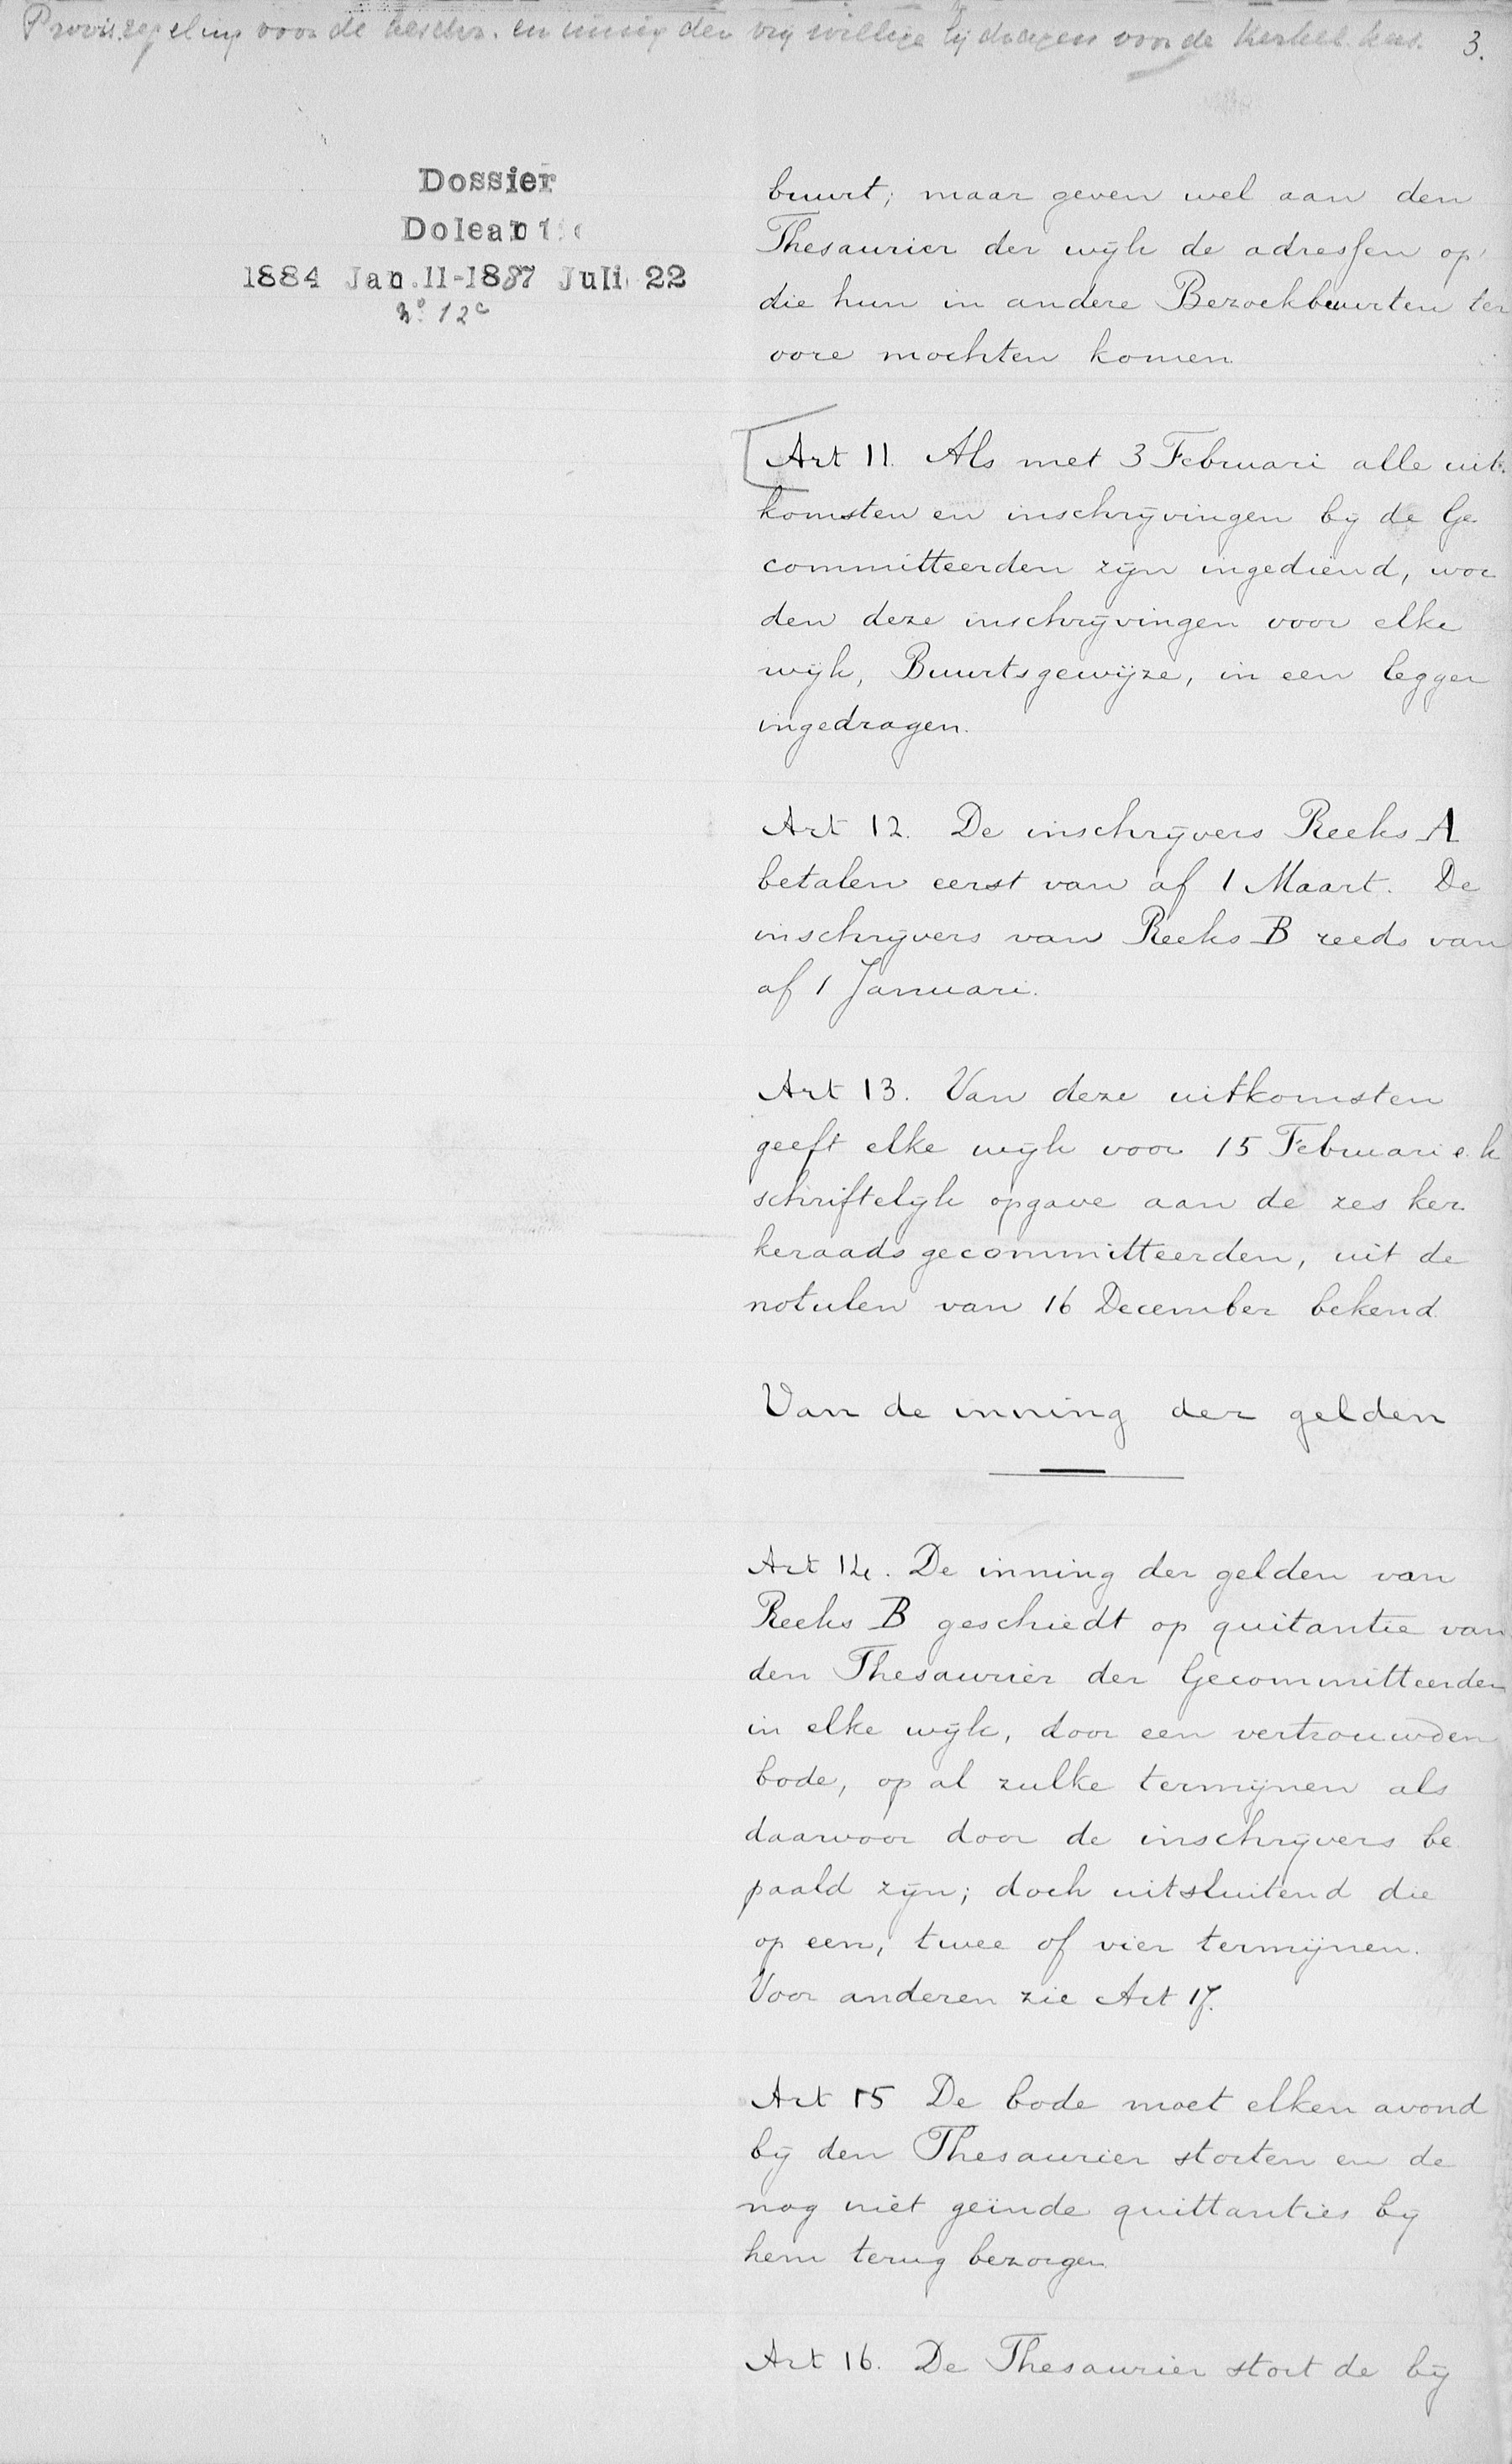 Provis. regeling voor de beschr. en inning der vrijwillige bijdragen voor de Kerkel. kas.
3.
Dossier
Doleantie
1884 Jan.11-1887 Juli 22
No. 12c
buurt; maar geven wel aan den
Thesaurier der wijk de adressen op
die hun in andere Bezoekbuurten ter
oore mochten komen
Art 11. Als met 3 Februari alle uit-
komsten en inschrijvingen bij de Ge
committeerden zijn ingediend, wor
den deze inschrijvingen voor elke
wijk, Buurtsgewijze, in een legger
ingedragen.
Art 12. De inschrijvers Reeks A
betalen eerst van af 1 Maart. De
inschrijvers van Reeks B reeds van
af 1 Januari.
Art 13. Van deze uitkomsten
geeft elke wijk voor 15 Februari e.k
schriftelijk opgave aan de zes ker
keraads gecommitteerden, uit de
notulen van 16 December bekend.
Van de inning der gelden
Art 14. De inning der gelden van
Reeks B geschiedt op quitantie van
den Thesaurier der Gecommitteerden
in elke wijk, door een vertrouwden
bode, op al zulke termijnen als
daarvoor door de inschrijvers be
paald zijn; doch uitsluitend die
op een, twee of vier termijnen.
Voor anderen zie Art 17.
Art 15 De bode moet elken avond
bij den Thesaurier storten en de
nog niet geïnde quittanties bij
hem terug bezorgen
Art 16. De Thesaurier stort de bij